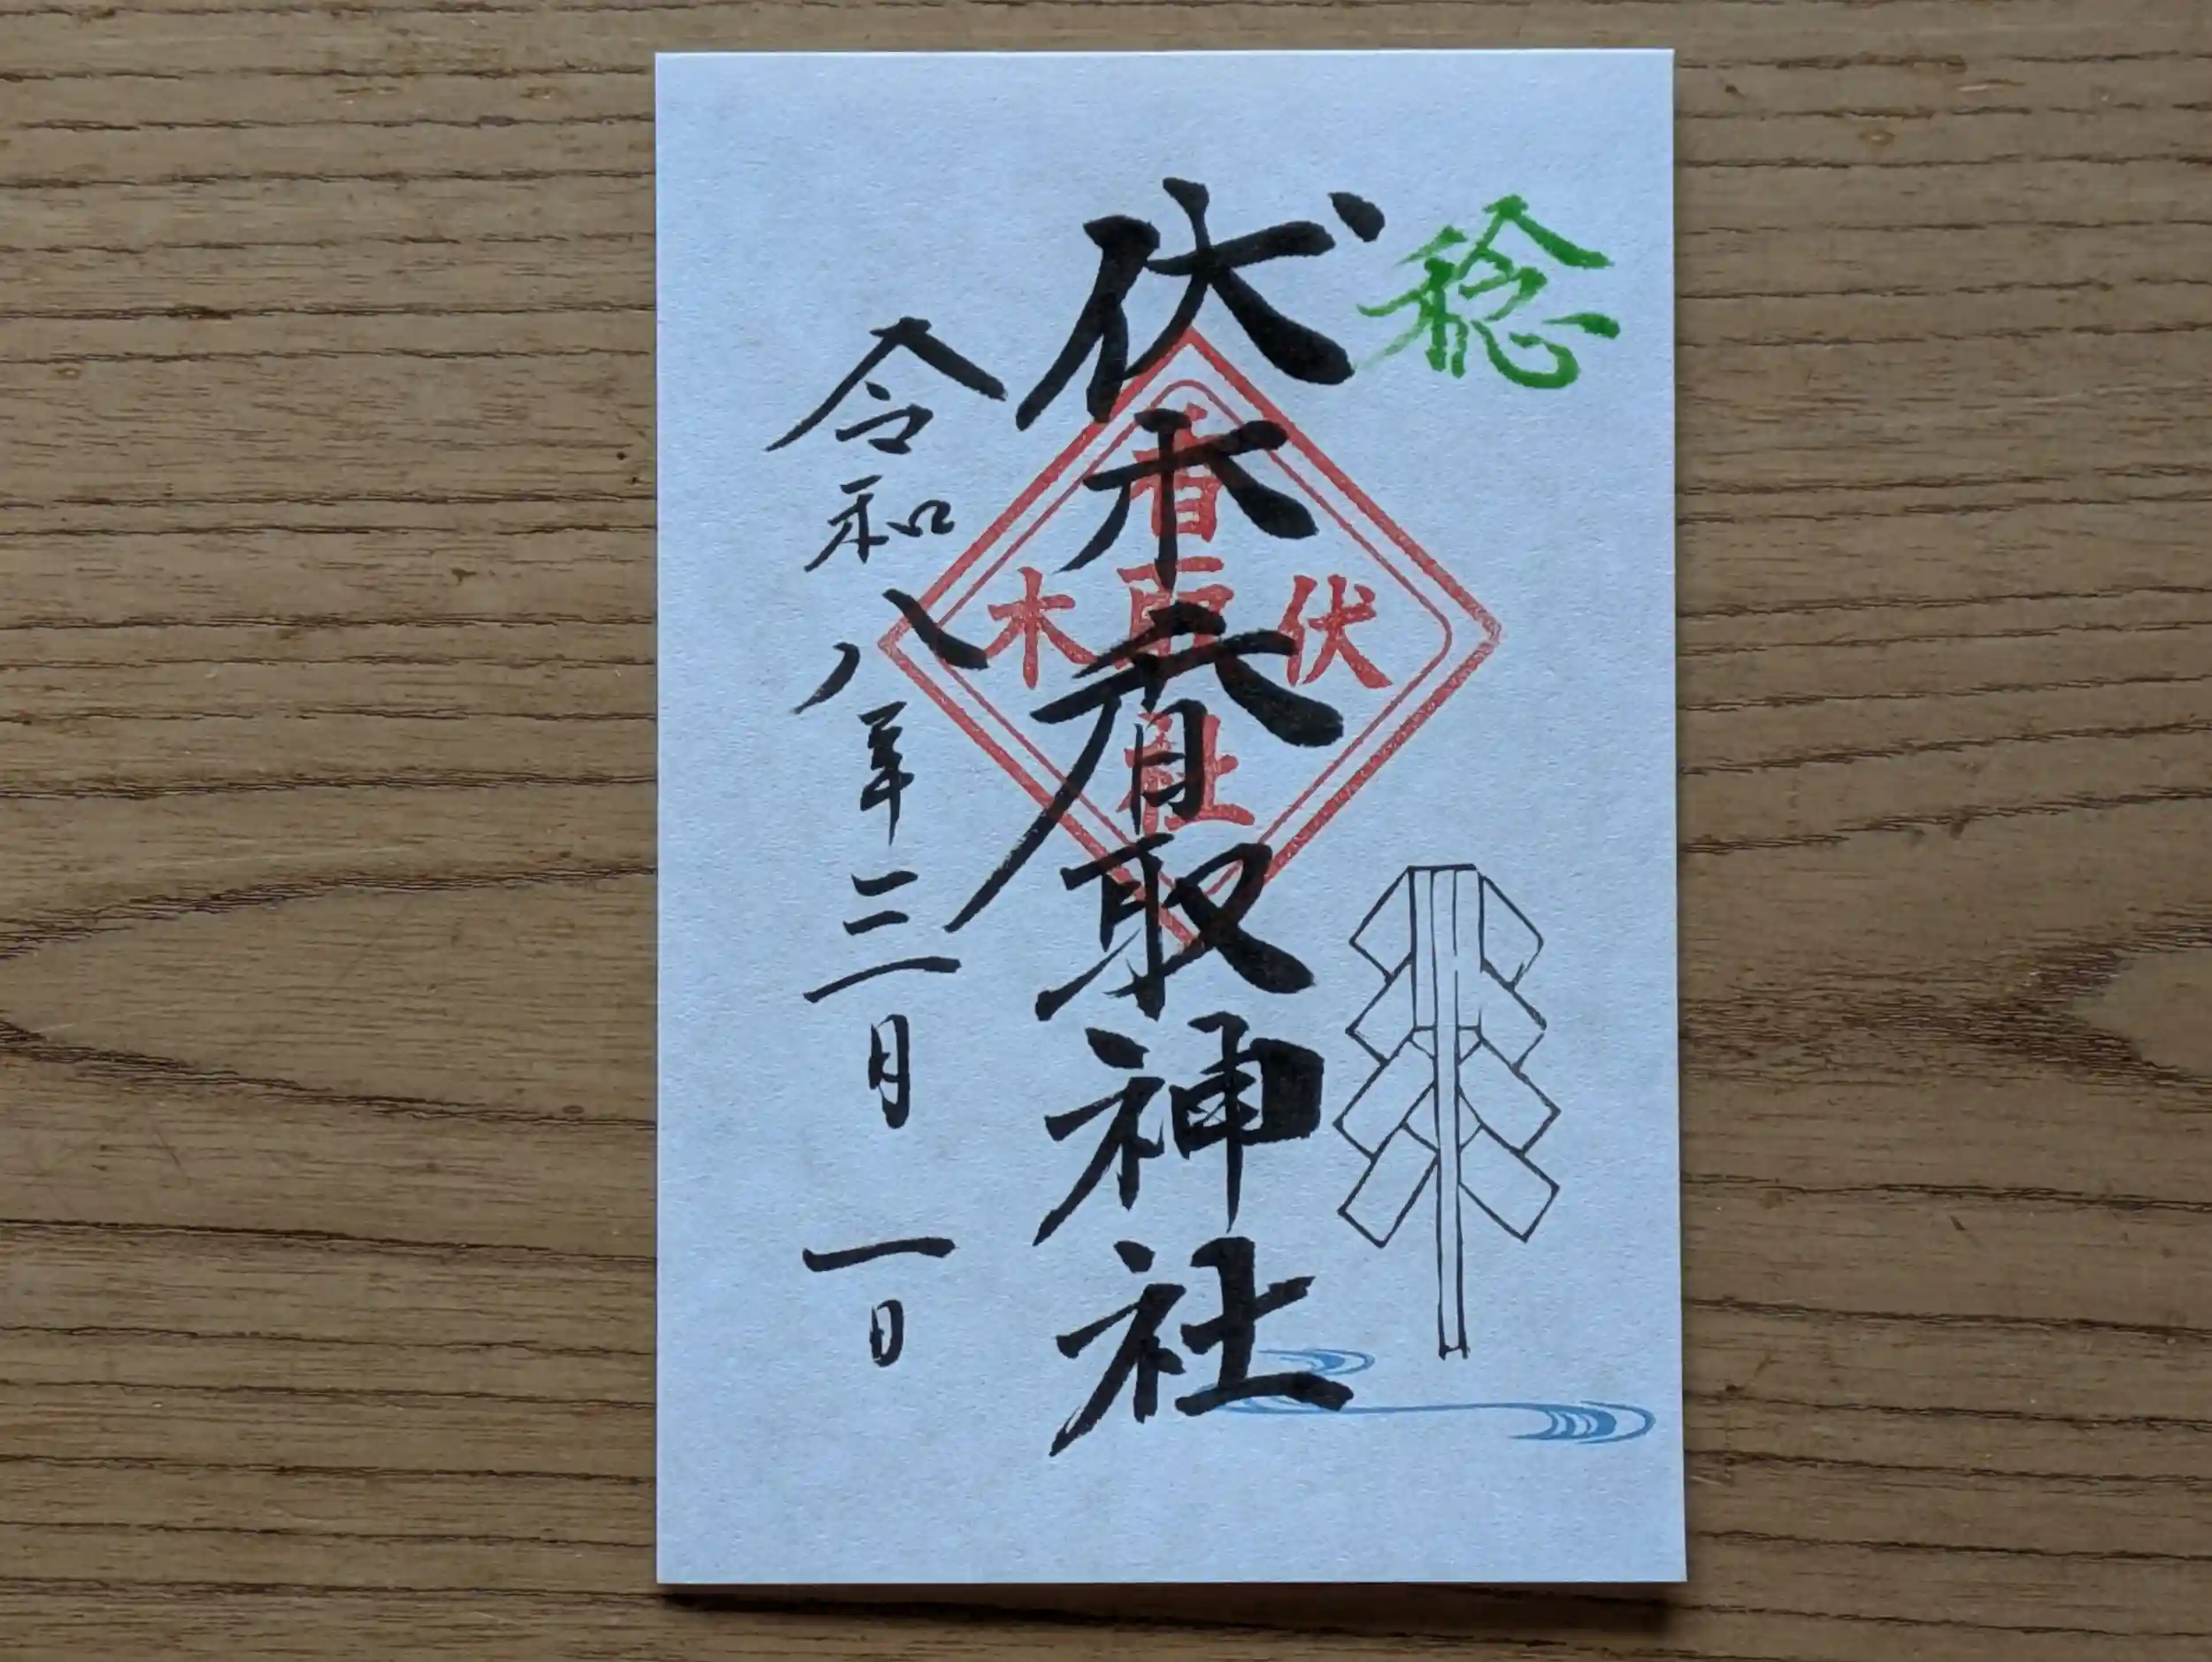 稔
伏木香取神社
伏木
香取社
令和八年三月一日